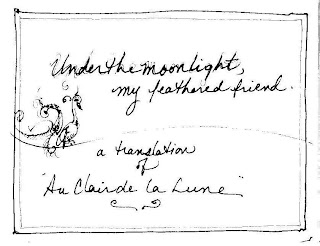 Under the moonlight,
my feathered friend.
a translation
of
"Au Clair de la Lune"